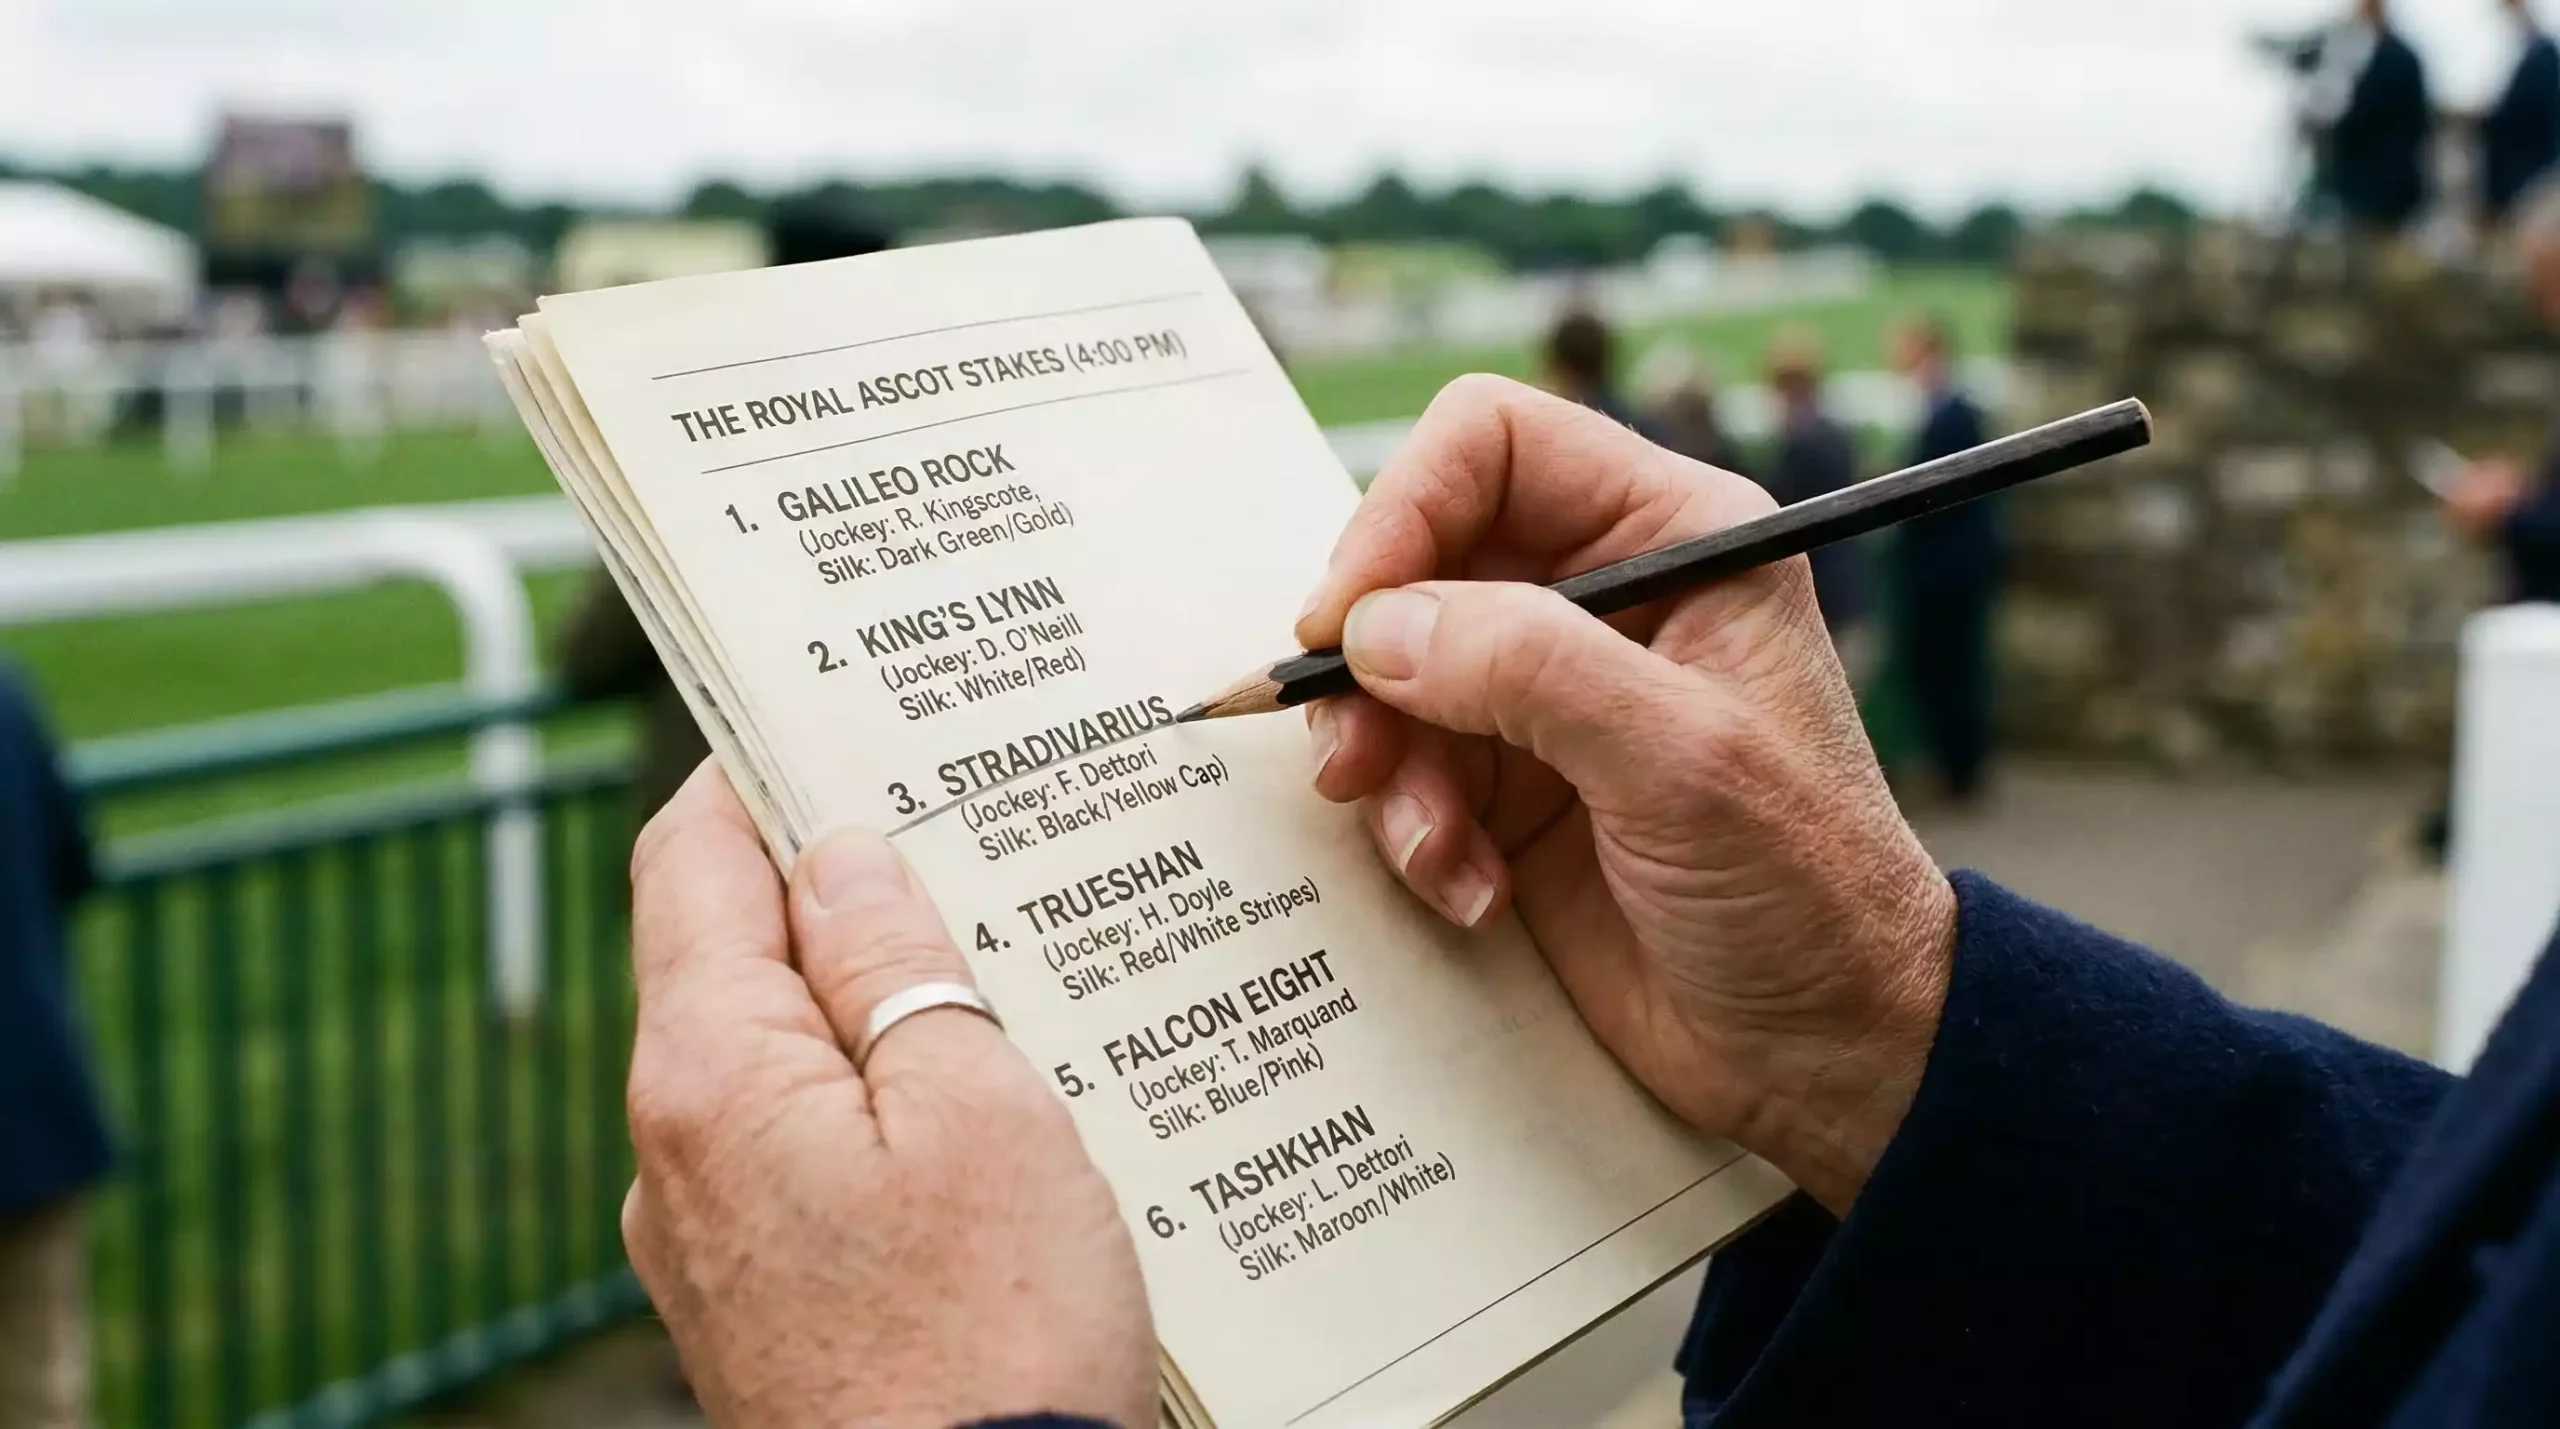 THE ROYAL ASCOT STAKES (4:00 PM)
1. GALILEO ROCK
(Jockey: R. Kingscote,
Silk: Dark Green/Gold)
2. KING'S LYNN
(Jockey: D. O'Neill
Silk: White/Red)
3. STRADIVARIUS
(Jockey: F. Dettori
Silk: Black/Yellow Cap)
4. TRUESHAN
(Jockey: H. Doyle
Silk: Red/White Stripes)
5. FALCON EIGHT
(Jockey: T. Marquand
Silk: Blue/Pink)
6. TASHKHAN
(Jockey: L. Dettori
Silk: Maroon/White)